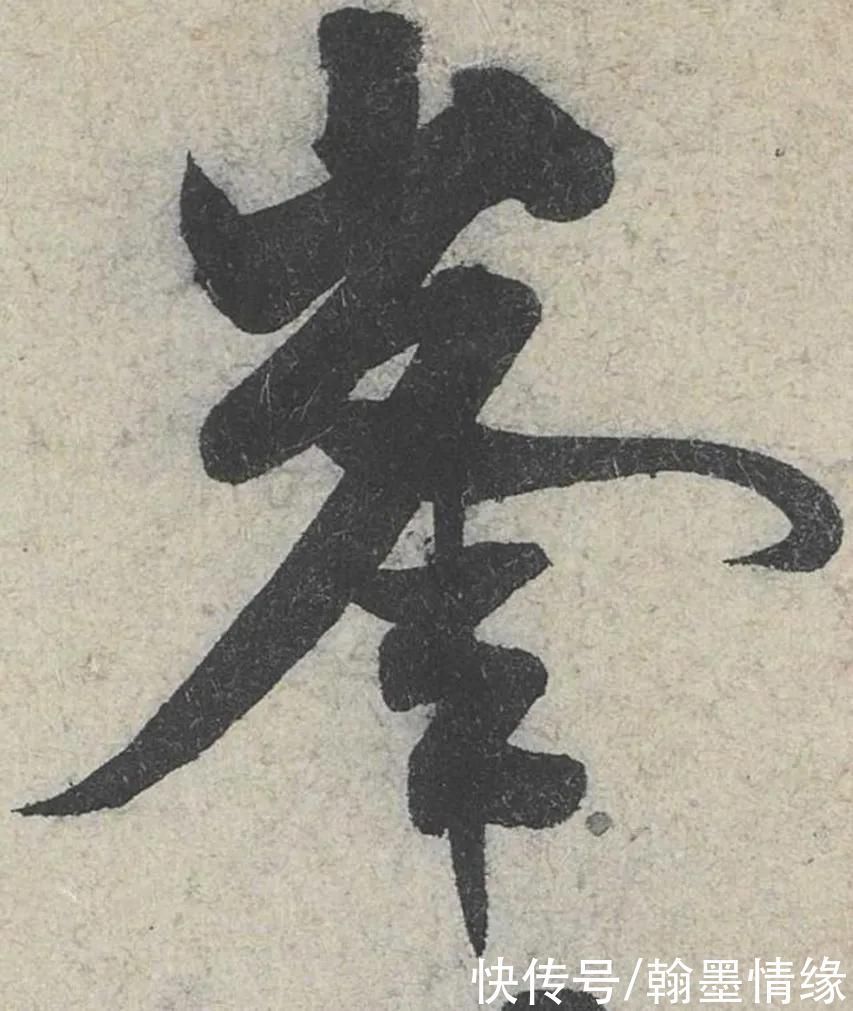 峯
快传号/翰墨情缘